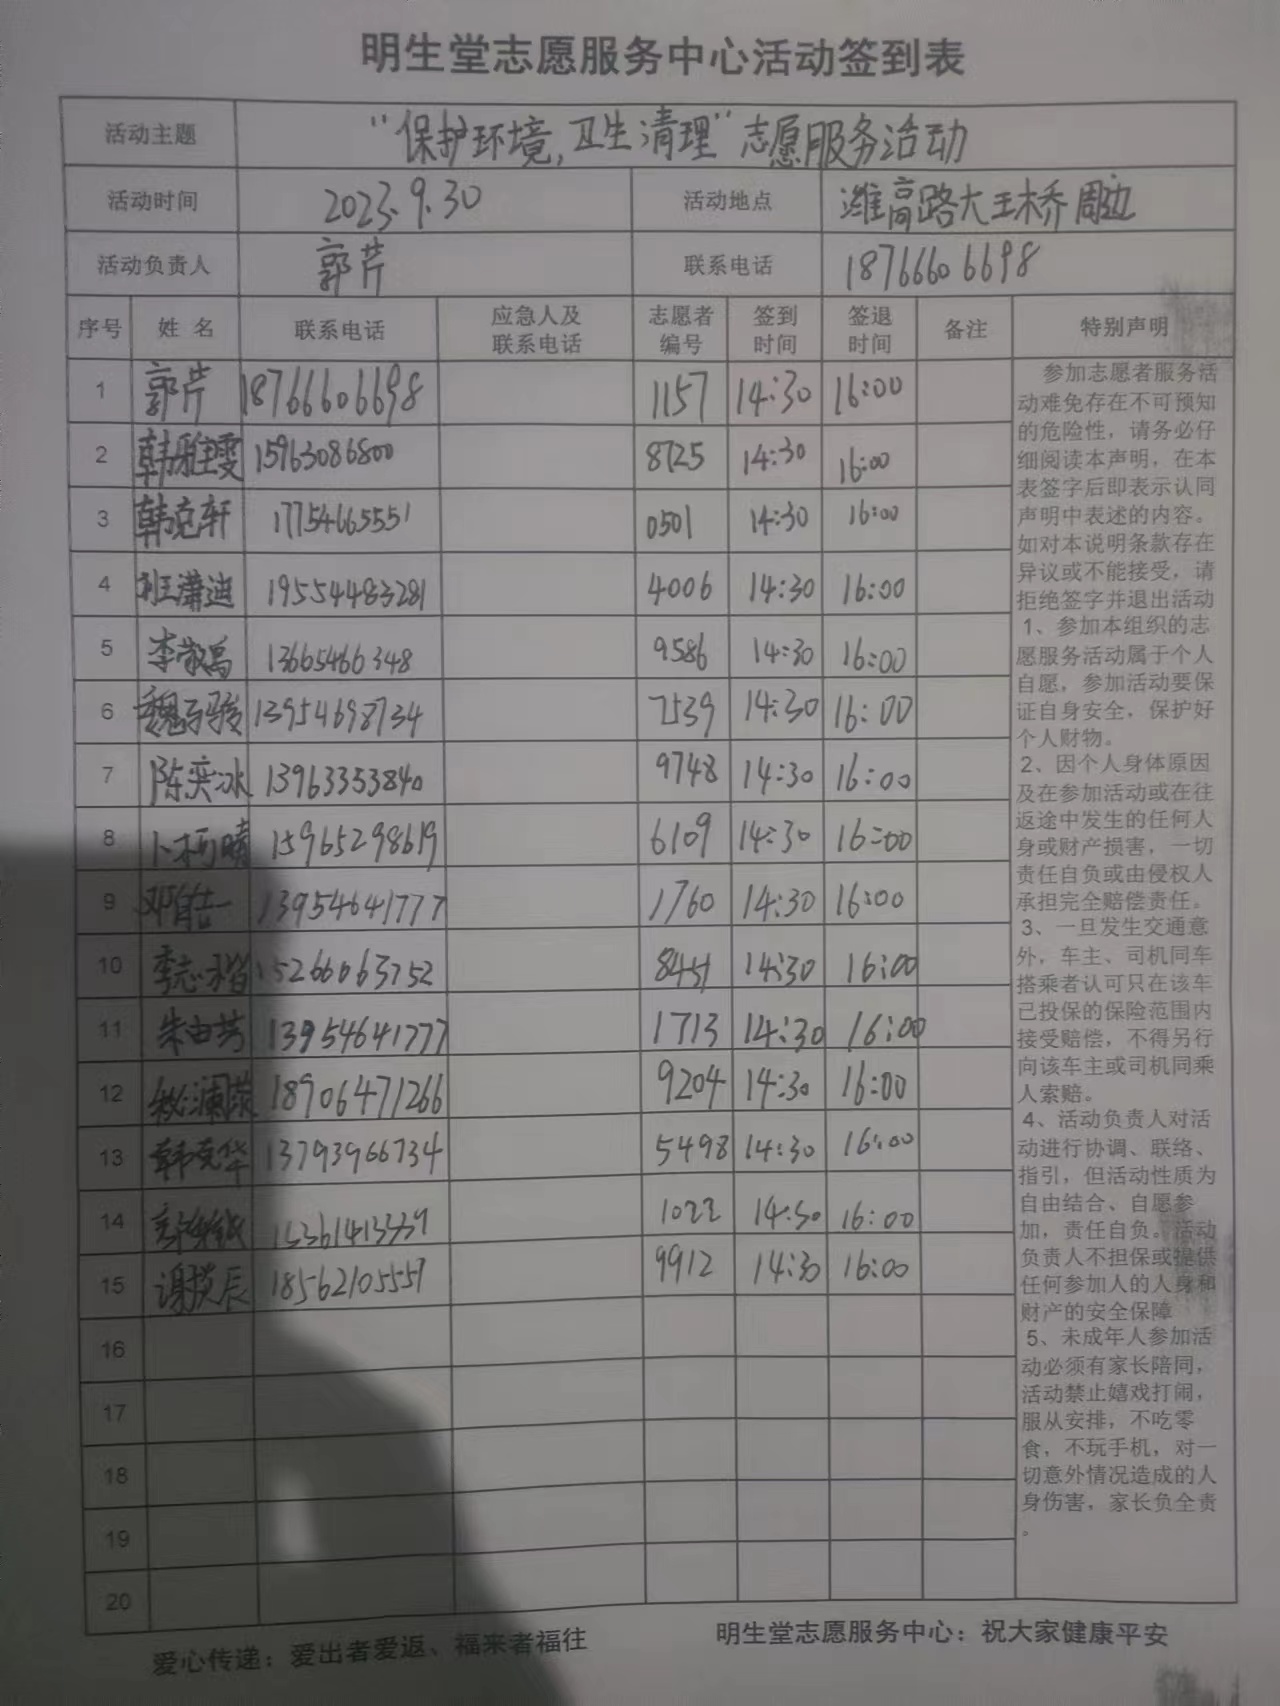 明生堂志愿服务中心活动签到表
活动主题 “保护环境,卫生清理”志愿服务活动
活动时间 2023.9.30 活动地点 潍高路大王桥周边
活动负责人 郭芹 联系电话 18766606698
序号 姓 名 联系电话 应急人及联系电话 志愿者编号 签到时间 签退时间 备注 特别声明
1 郭芹 18766606698 1157 14:30 16:00
2 韩雅雯 15963086800 8725 14:30 16:00
3 韩克轩 17754665551 0501 14:30 16:00
4 班潇迪 19554483281 4006 14:30 16:00
5 李敬 13665466348 9586 14:30 16:00
6 魏子骏 13954698734 7539 14:30 16:00
7 陈奕冰 13963353840 9748 14:30 16:00
8 卜柯晴 15965298619 6109 14:30 16:00
9 邓自一 13954641777 1760 14:30 16:00
10 李志 15266063752 14:30 16:00
11 朱由芳 13954641777 1713 14:30 16:00
12 澜 18906471266 9204 14:30 16:00
13 韩克华 13793966734 5498 14:30 16:00
14 1022 14:30 16:00
15 谢辰 18562105557 9912 14:30 16:00
16
17
18
19
20
参加志愿者服务活
动难免存在不可预知
的危险性，请务必仔
细阅读本声明，在本
表签字后即表示认同
声明中表述的内容。
如对本说明条款存在
异议或不能接受，请
拒绝签字并退出活动
1、参加本组织的志
愿服务活动属于个人
自愿，参加活动要保
证自身安全，保护好
个人财物。
2、因个人身体原因
及在参加活动或在往
返途中发生的任何人
身或财产损害，一切
责任自负或由侵权人
承担完全赔偿责任。
3、一旦发生交通意
外，车主、司机同车
搭乘者认可只在该车
已投保的保险范围内
接受赔偿，不得另行
向该车主或司机同乘
人索赔。
4、活动负责人对活
动进行协调、联络、
指引，但活动性质为
自由结合、自愿参
加，责任自负。活动
负责人不担保或提供
任何参加人的人身和
财产的安全保障
5、未成年人参加活
动必须有家长陪同，
活动禁止嬉戏打闹，
服从安排，不吃零
食，不玩手机，对一
切意外情况造成的人
身伤害，家长负全责
。
爱心传递：爱出者爱返、福来者福往
明生堂志愿服务中心：祝大家健康平安